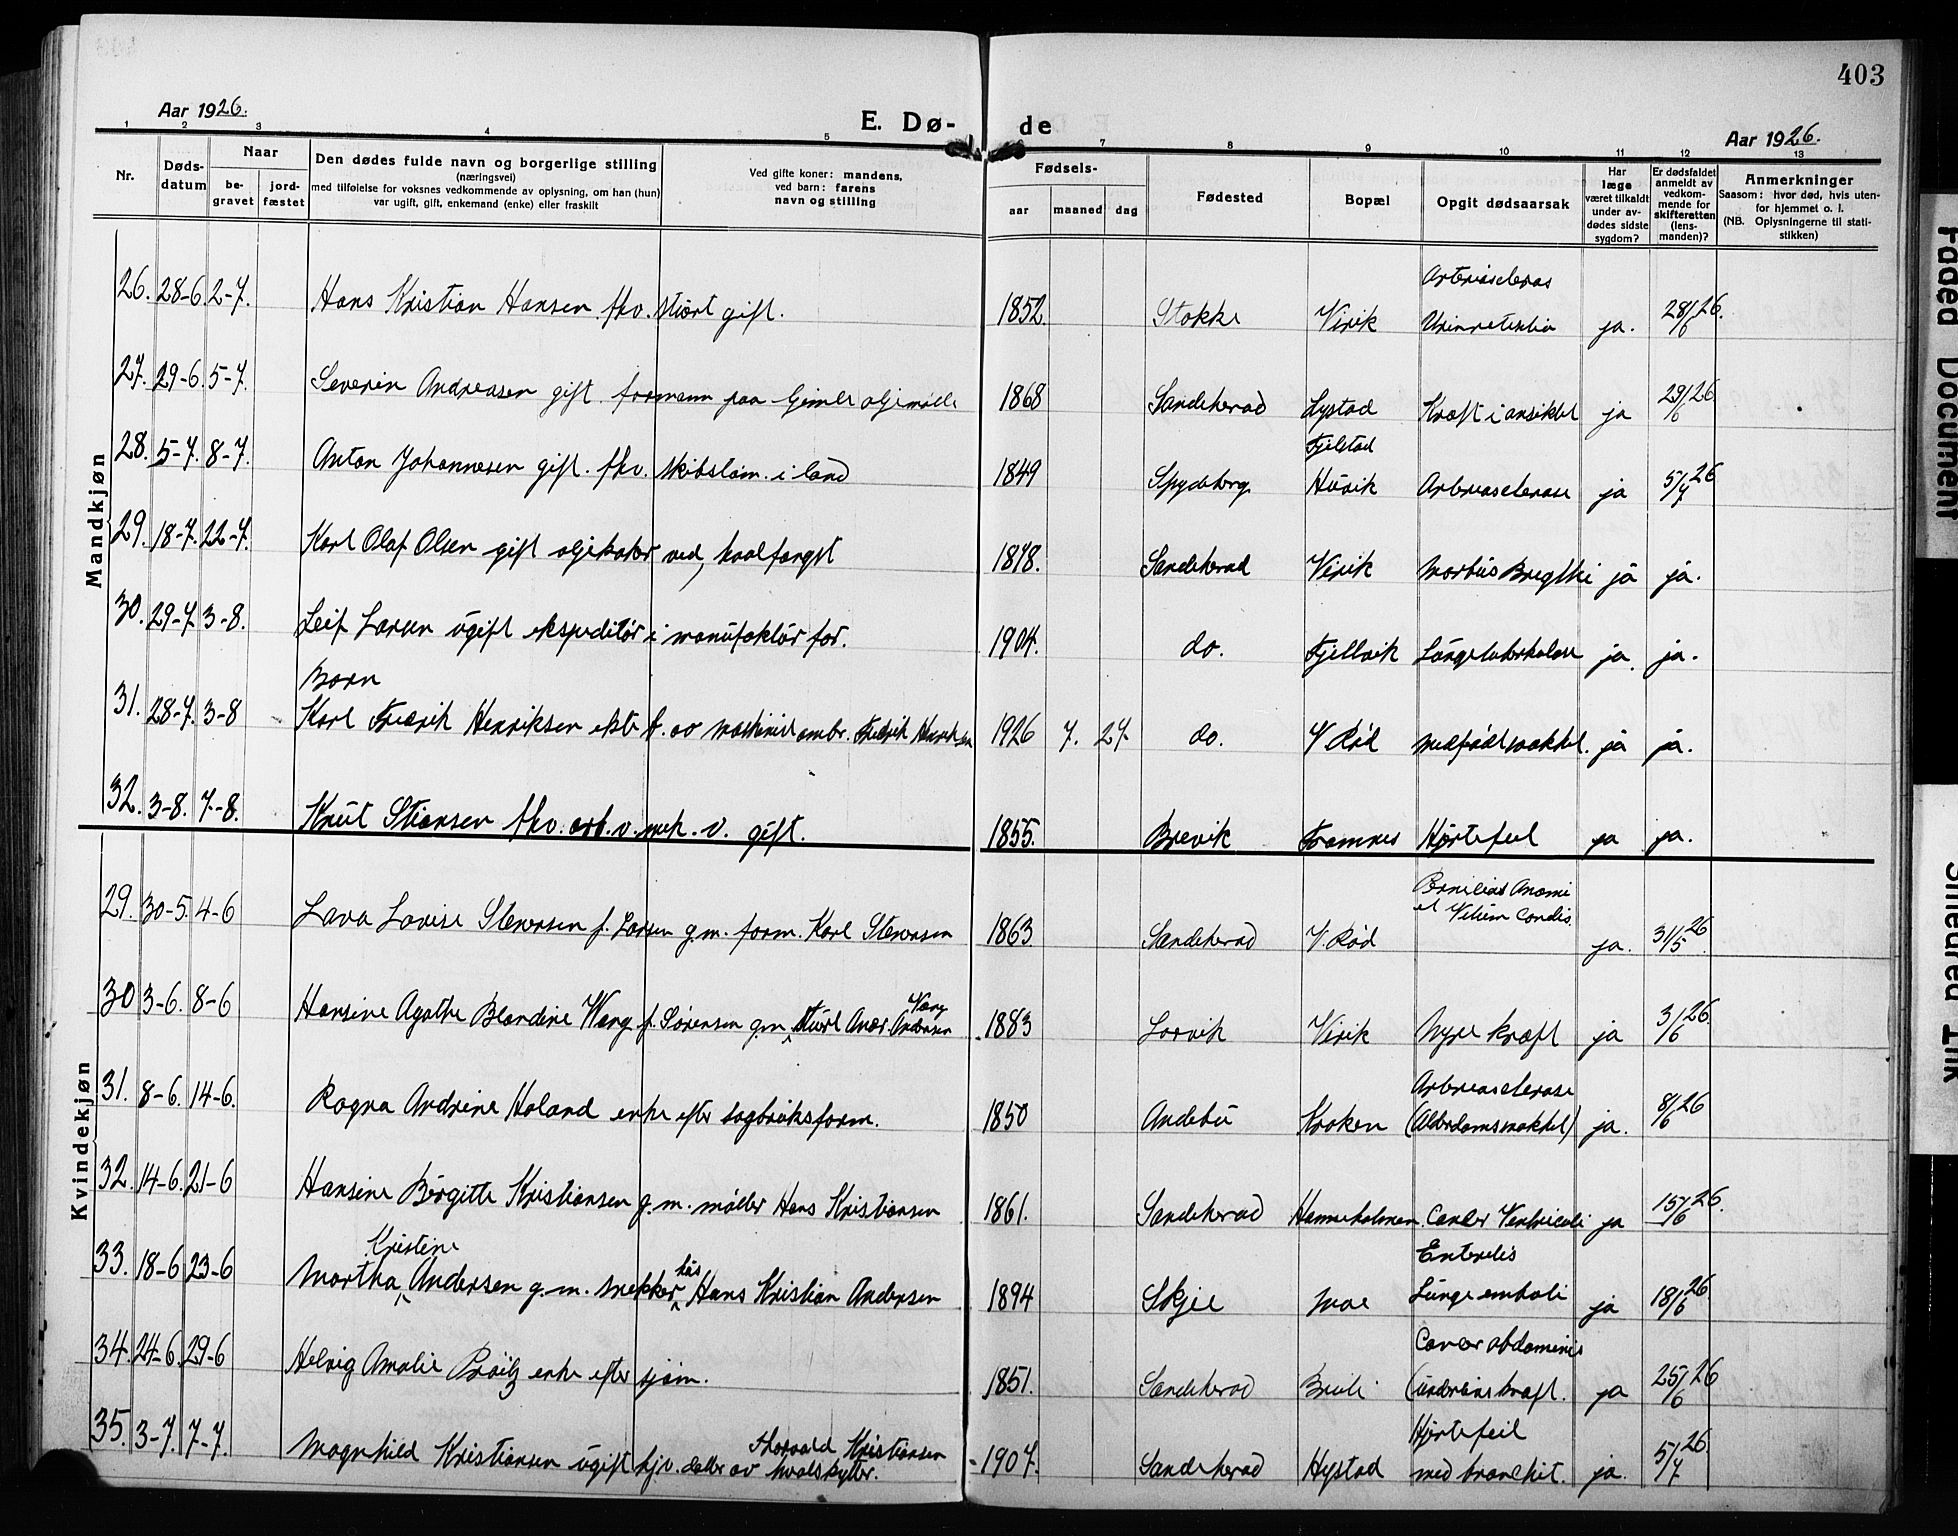 403
Aar 1926.
E. Dø- de
Aar 1926.
1 2 3 4 5 7 8 9 10 11 12 13
Nr.
Døds-
datum
Naar
be-
gravet
jord-
fæstet
Den dødes fulde navn og borgerlige stilling
(næringsvei)
med tilføielse for voksnes vedkommende av oplysning, om han (hun)
var ugift, gift, enkemand (enke) eller fraskilt
Ved gifte koner: mandens,
ved barn: farens
navn og stilling
Fødsels-
aar
maaned
dag
Fødested
Bopæl
Opgit dødsaarsak
Har
læge
været tilkaldt
under av-
dødes sidste
sygdom?
Er dødsfaldet
anmeldt av
vedkom-
mende for
skifteretten
(lens-
manden)?
Anmerkninger
Saasom: hvor død, hvis uten-
for hjemmet o. l.
(NB. Oplysningerne til stati-
stikken)
Mandkjøn
26. 28-6 2-7. Hans Kristian Hansen fhv. stuert gift. 1852. Stokke Virik Arterioscleros Urinretention ja. 28/6 26.
27. 29-6. 5-7. Severin Andreasen gift formann paa Gimle oljemølle 1868 Sandeherad Lystad Kræft i ansiktet ja 29/6 26
28. 5-7. 8-7. Anton Johannesen gift. fhv. skibstøm. i land 1849 Spydeberg Fjelstad Huvik Arteriosclerose ja 5/7 26
29. 18-7. 22-7. Karl Olaf Olsen gift oljekoker ved hvalfangst 1878. Sandeherad Virik Morbus Brigthi ja ja.
30. 29-7. 3-8. Leif Larsen ugift ekspeditør i manufaktur for. 1904. do. Fjellvik Lungetuberkulose ja ja.
Barn
31. 28-7. 3-8 Karl Fredrik Henriksen ekte f. av maskinist ombr. Fredrik Henriksen 1926 7. 27 do. V. Rød medfødt svakhet. ja ja.
32. 3-8. 7-8. Knut Stiansen fhv. arb. v. mek. v. gift. 1855. Brevik Framnes Hjertefeil ja ja.
Kvindekjøn
29. 30-5. 4-6 Lava Lovise Stenersen f. Larsen g.m. form. Karl Stenersen 1863 Sandeherad V. Rød Perniciøs Anæmi et Vitium Cordis. ja. 31/5 26
30 3-6. 8-6 Hansine Agathe Blandine Wang f. Sørensen g.m. stuert Anor. Wang Andersen 1883 Larvik Virik Nyre kræft ja 3/6 26.
31. 8-6. 14-6. Ragna Andrine Haland enke efter sagbruksform. 1850 Andebu Kroken Arteriosclerose (Alderdomssvakhet) ja. 8/6 26
32. 14-6. 21-6 Hansine Birgitte Kristiansen g.m. møller Hans Kristiansen 1861. Sandeherad Hanneholmen Cancer Ventriculi ja 15/6 26.
33. 18-6 23-6 Martha Kristine Andersen g.m. snekker hus Hans Kristian Andersen 1894 Skjee Moe Enteritis Lunge emboli ja 18/6 26.
34. 24-6. 29-6 Helvig Amalie enke efter sjøm. 1851. Sandeherad Breili Cancer abdominis (underlivskræft. ja 25/6 26
35. 3-7. 7-7. Magnhild Kristiansen ugift hjv. datter av Thorvald Kristiansen hvalskytter. 1907. Sandeherad Hystad Hjertefeil med bronchit. ja. 5/7 26.
Faded Document
Smeared Ink